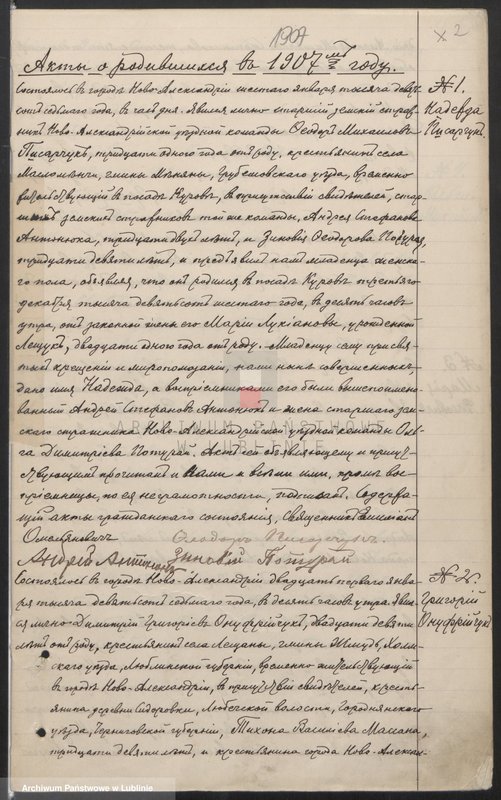 1907
2
Акты о родившихся въ 1907мъ году.
Состоялось въ городѣ Ново-Александріи шестаго января тысяча девять-
сотъ седьмаго года, въ часъ дня. Явился лично старшій земскій страж-
никъ Ново-Александрійской уѣздной команды Ѳеодоръ Михаиловъ
Писарчукъ, тридцати одного года отъ роду, крестьянинъ села
Масломенчи, гмины Мѣняны, Грубешовскаго уѣзда, временно
жительствующій въ посадѣ Куровъ, въ присутствіи свидѣтелей, стар-
шихъ земскихъ стражниковъ той же команды, Андрея Стефанова
Антонюка, тридцати двухъ лѣтъ, и Зиновія Ѳеодорова Потурая,
тридцати девяти лѣтъ, и предъявилъ намъ младенца женска-
го пола, объявляя, что онъ родился въ посадѣ Куровъ третьяго
декабря тысяча девятьсотъ шестаго года, въ десять часовъ
утра, отъ законной жены его Маріи Лукіановы, урожденной
Лещукъ, двадцати одного года отъ роду. Младенцу сему при свя-
томъ крещеніи и миропомазаніи, нами нынѣ совершенномъ,
дано имя Надежда, а воспріемниками его были вышепоимено-
ванный Андрей Стефановъ Антонюкъ и жена старшаго зем-
скаго стражника Ново-Александрійской уѣздной команды Оль-
га Димитріева Потурай. Актъ сей объявляющему и присут-
ствующимъ прочитанъ и Нами и всѣми ими, кромѣ вос-
пріемницы, по ея неграмотности, подписанъ. Содержа-
щій акты гражданскаго состоянія, Священникъ
Ѳеодоръ Писарчукъ.
Андрей Антонюкъ Зиновій Потурай
Состоялось въ городѣ Ново-Александріи двадцать перваго янва-
ря тысяча девятьсотъ седьмаго года, въ десять часовъ утра. Явил-
ся лично Димитрій Григоріевъ Онуфрійчукъ, двадцати девяти
лѣтъ отъ роду, крестьянинъ села Лещаны, гмины Жмудь, Холм-
скаго уѣзда, Люблинской губерніи, временно жительствующій
въ городѣ Ново-Александріи, въ присутствіи свидѣтелей, кресть-
янина деревни Сидоровки, Любечской волости, Городнянскаго
уѣзда, Черниговской губерніи, Тихона Василіева
тридцати девяти лѣтъ, и крестьянина города Ново-Алексан-
№ 1.
Надежда
Писарчукъ.
№ 2.
Григорій
Онуфрійчукъ
ARCHIWUM PAŃSTWOWE
W LUBLINIE
Archiwum Państwowe w Lublinie